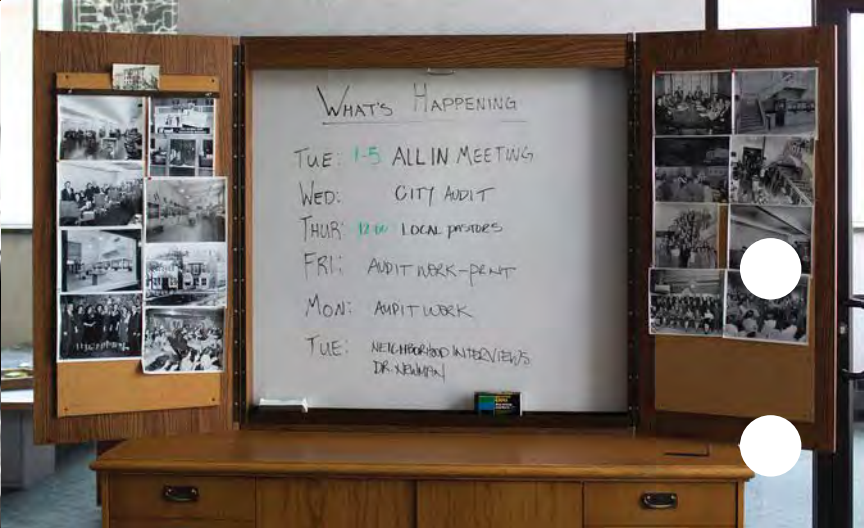 WHAT'S HAPPENING
TUE: 1-5 ALL IN MEETING
WED: CITY AUDIT
THUR: 12:00 LOCAL PASTORS
FRI: AUDIT WORK - PRINT
MON: AUDIT WORK
TUE: NEIGHBORHOOD INTERVIEWS
DR. NEWMAN